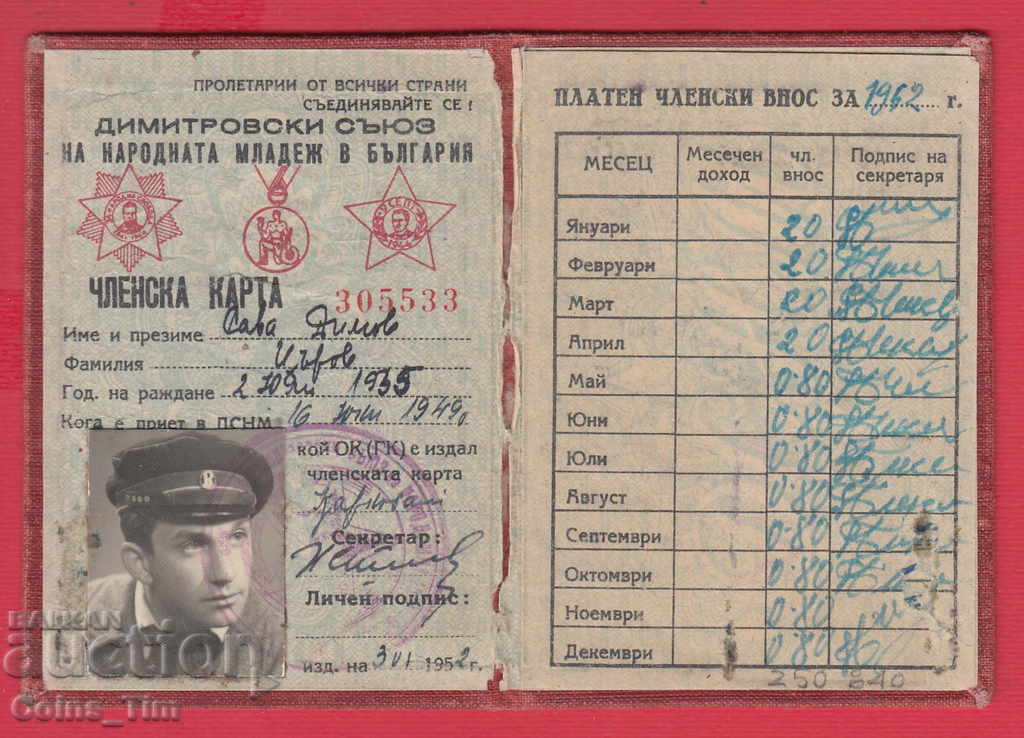 ПРОЛЕТАРИИ ОТ ВСИЧКИ СТРАНИ
СЪЕДИНЯВАЙТЕ СЕ!
ДИМИТРОВСКИ СЪЮЗ
НА НАРОДНАТА МЛАДЕЖ В БЪЛГАРИЯ
ЧЛЕНСКА КАРТА 305533
Име и презиме Сава Димов
Фамилия Църов
Год. на раждане 2 юли 1935
Кога е приет в ДСНМ 16 юни 1949
кой ОК (ГК) е издал
членската карта
Секретар:
Личен подпис:
изд. на 3 VI 1952 г.
ПЛАТЕН ЧЛЕНСКИ ВНОС ЗА 1952 г.
МЕСЕЦ Месечен доход чл. внос Подпис на секретаря
Януари 20
Февруари 20
Март 20
Април 20
Май 0·80
Юни 0·80
Юли 0·80
Август 0·80
Септември 0·80
Октомври 0·80
Ноември 0·80
Декември 0·80
250 640
BALKAN
auction
Coins_Tim